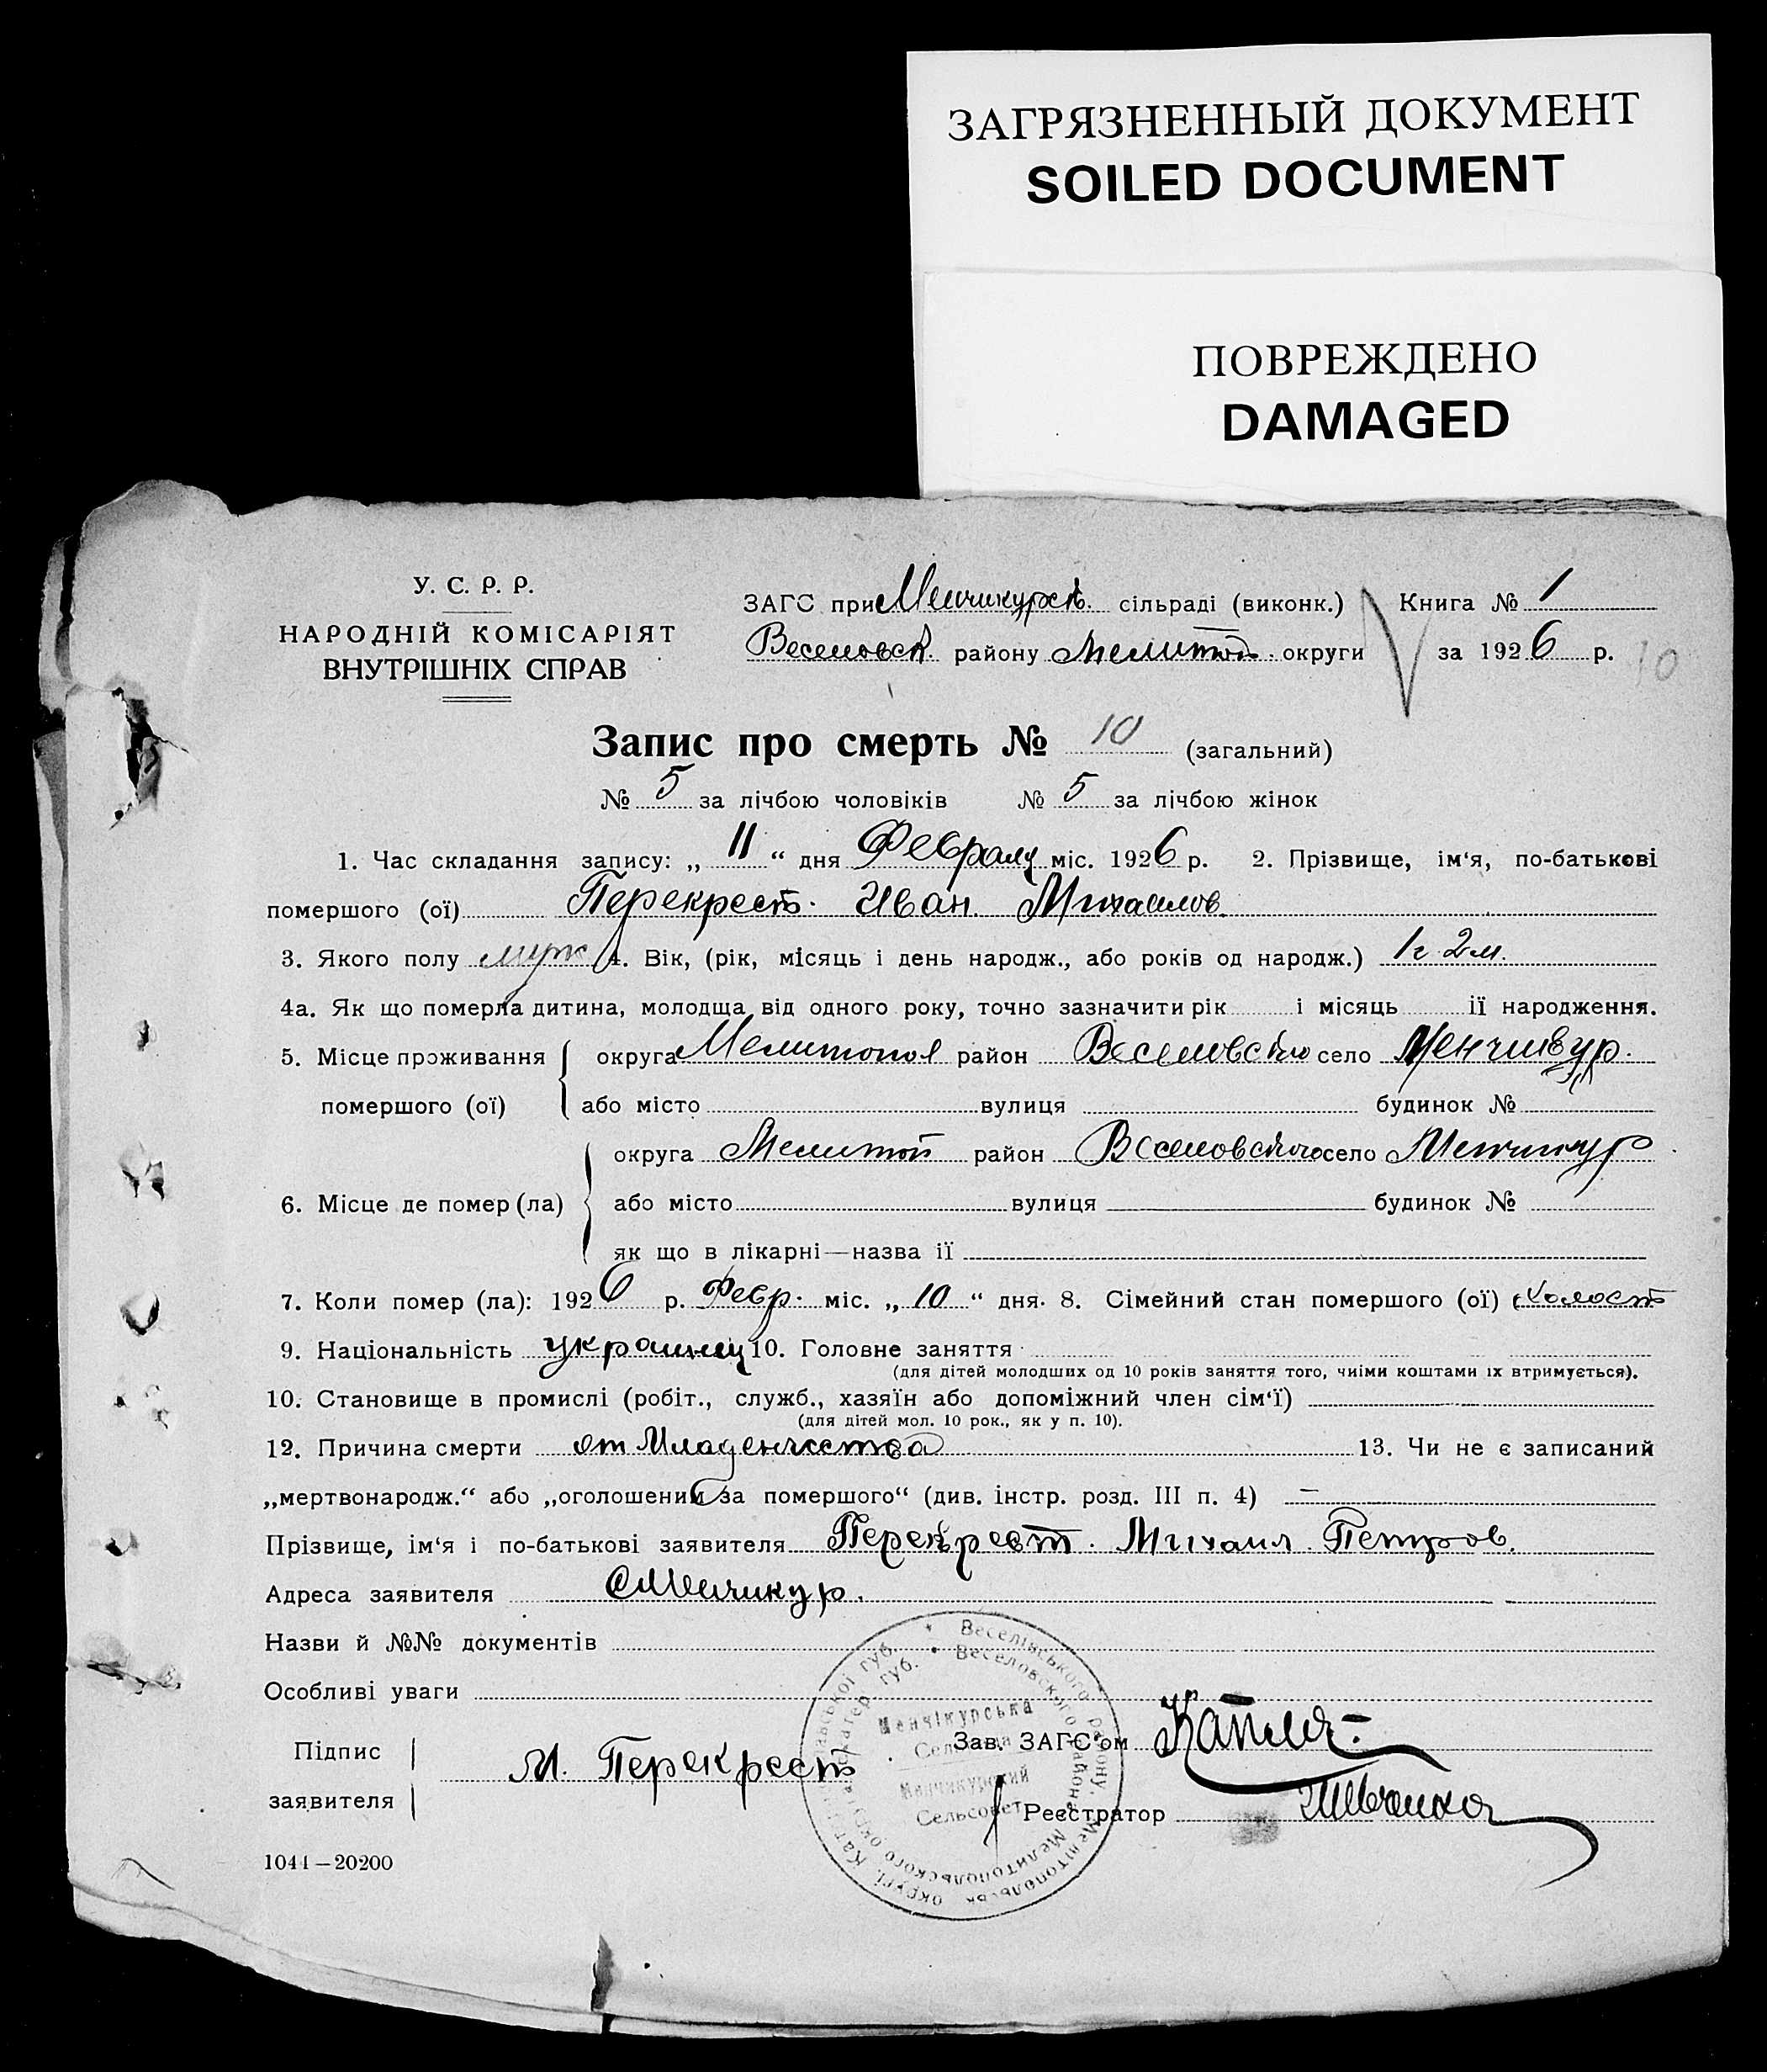 ЗАГРЯЗНЕННЫЙ ДОКУМЕНТ
SOILED DOCUMENT
ПОВРЕЖДЕНО
DAMAGED
У. С. Р. Р.
НАРОДНІЙ КОМІСАРІЯТ
ВНУТРІШНІХ СПРАВ
ЗАГС при Менчикурск. сільраді (виконк.) Книга № 1
Веселовск. району Мелитоп. округи за 1926 р. 10
Запис про смерть № 10 (загальний)
№ 5 за лічбою чоловіків № 5 за лічбою жінок
1. Час складання запису: „ 11 “ дня Февраля міс. 1926 р. 2. Прізвище, ім‘я, по-батькові
помершого (ої) Перекрест. Иван Михаилов.
3. Якого полу муж 4. Вік, (рік, місяць і день народж., або років од народж.) 1 г 2 м.
4а. Як що померла дитина, молодща від одного року, точно зазначити рік і місяць її народження.
5. Місце проживання округа Мелитопол район Веселовского село Менчикур.
помершого (ої) або місто вулиця будинок №
округа Мелитоп район Веселовского село Менчикур
6. Місце де помер (ла) або місто вулиця будинок №
як що в лікарні—назва її
7. Коли помер (ла): 1926 р. Февр. міс. „ 10 “ дня. 8. Сімейний стан помершого (ої) холост
9. Національність украинец 10. Головне заняття
(для дітей молодших од 10 років заняття того, чиіми коштами їх втримується).
10. Становище в промислі (робіт., служб., хазяїн або допоміжний член сім‘ї)
(для дітей мол. 10 рок., як у п. 10).
12. Причина смерти от Младенчества 13. Чи не є записаний
„мертвонародж.“ або „оголошений за помершого“ (див. інстр. розд. III п. 4) —
Прізвище, ім‘я і по-батькові заявителя Перекрест. Михаил. Петров.
Адреса заявителя с Менчикур.
Назви й №№ документів
Особливі уваги
Підпис
заявителя М. Перекрест
Зав. ЗАГС‘ом
Реєстратор
Веселівського району, Мелітопольськ округи, Кат
Веселовского района Мелитопольского округа Екатер. губ.
Менчікурська
Сельрада
Менчикурский
Сельсовет
1044—20200